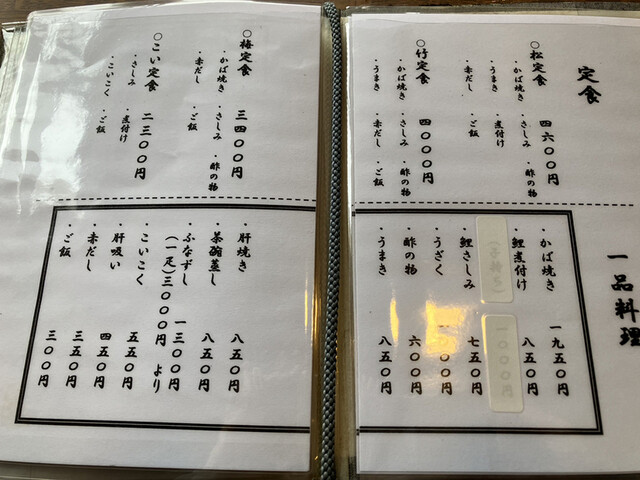 定食
○松定食 四六〇〇円
・かば焼き ・さしみ ・酢の物
・うまき ・煮付け
・赤だし ・ご飯
○竹定食 四〇〇〇円
・かば焼き ・さしみ ・酢の物
・うまき ・赤だし ・ご飯
一品料理
・かば焼き 一九五〇円
鯉煮付け 八五〇円
(子持ち) 一〇〇〇円
・鯉さしみ 七五〇円
・うざく 〇〇円
・酢の物 六〇〇円
・うまき 八五〇円
○梅定食 三四〇〇円
・かば焼き ・さしみ ・酢の物
・赤だし ・ご飯
○こい定食 二三〇〇円
・さしみ ・煮付け
・こいこく ・ご飯
・肝焼き 八五〇円
・茶碗蒸し 八五〇円
・ふなずし 一三〇〇円
(一疋)三〇〇〇円 より
・こいこく 五五〇円
・肝吸い 四五〇円
・赤だし 三五〇円
・ご飯 三〇〇円